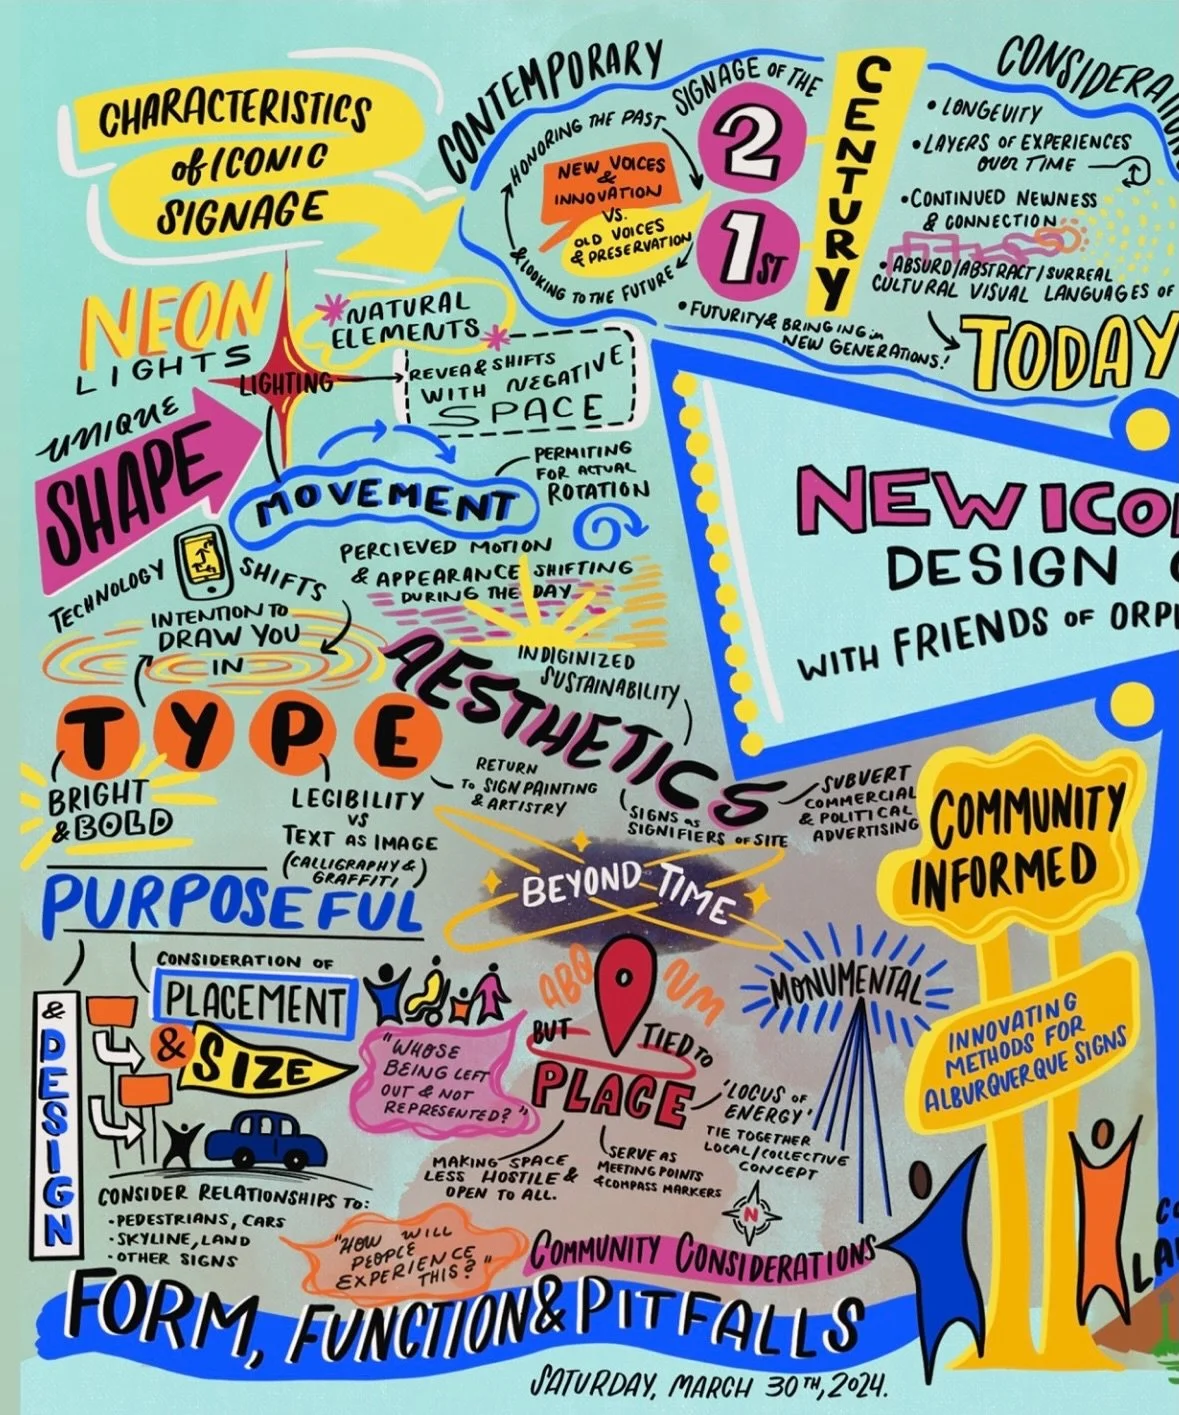 CHARACTERISTICS
of ICONIC
SIGNAGE
NEON
LIGHTS
LIGHTING
NATURAL
ELEMENTS
REVEA & SHIFTS
WITH NEGATIVE
SPACE
UNIQUE
SHAPE
MOVEMENT
PERMITING
FOR ACTUAL
ROTATION
PERCIEVED MOTION
& APPEARANCE SHIFTING
DURING THE DAY
TECHNOLOGY SHIFTS
INTENTION TO
DRAW YOU
IN
TYPE
BRIGHT
& BOLD
LEGIBILITY
VS
TEXT AS IMAGE
(CALLIGRAPHY &
GRAFFITI)
RETURN
TO SIGN PAINTING
& ARTISTRY
AESTHETICS
INDIGINIZED
SUSTAINABILITY
SIGNS AS
SIGNIFIERS OF SITE
SUBVERT
COMMERCIAL
& POLITICAL
ADVERTISING
CONTEMPORARY
SIGNAGE OF THE
21ST
CENTURY
HONORING THE PAST
NEW VOICES
&
INNOVATION
VS.
OLD VOICES
& PRESERVATION
& LOOKING TO THE FUTURE
• FUTURITY & BRINGING in
NEW GENERATIONS!
• LONGEVITY
• LAYERS OF EXPERIENCES
OVER TIME
• CONTINUED NEWNESS
& CONNECTION
• ABSURD/ABSTRACT/SURREAL
CULTURAL VISUAL LANGUAGES OF
TODAY
DESIGN
WITH FRIENDS OF
PURPOSEFUL
& DESIGN
CONSIDERATION OF
PLACEMENT
& SIZE
"WHOSE
BEING LEFT
OUT & NOT
REPRESENTED?"
CONSIDER RELATIONSHIPS TO:
• PEDESTRIANS, CARS
• SKYLINE, LAND
• OTHER SIGNS
"HOW WILL
PEOPLE
EXPERIENCE
THIS?"
BEYOND TIME
ABQ NM
BUT TIED TO
PLACE
'LOCUS OF
ENERGY'
TIE TOGETHER
LOCAL/COLLECTIVE
CONCEPT
MAKING SPACE
LESS HOSTILE &
OPEN TO ALL.
SERVE AS
MEETING POINTS
& COMPASS MARKERS
N
MONUMENTAL
COMMUNITY
INFORMED
INNOVATING
METHODS FOR
ALBURQUERQUE SIGNS
COMMUNITY CONSIDERATIONS
FORM, FUNCTION & PITFALLS
SATURDAY, MARCH 30TH, 2024.